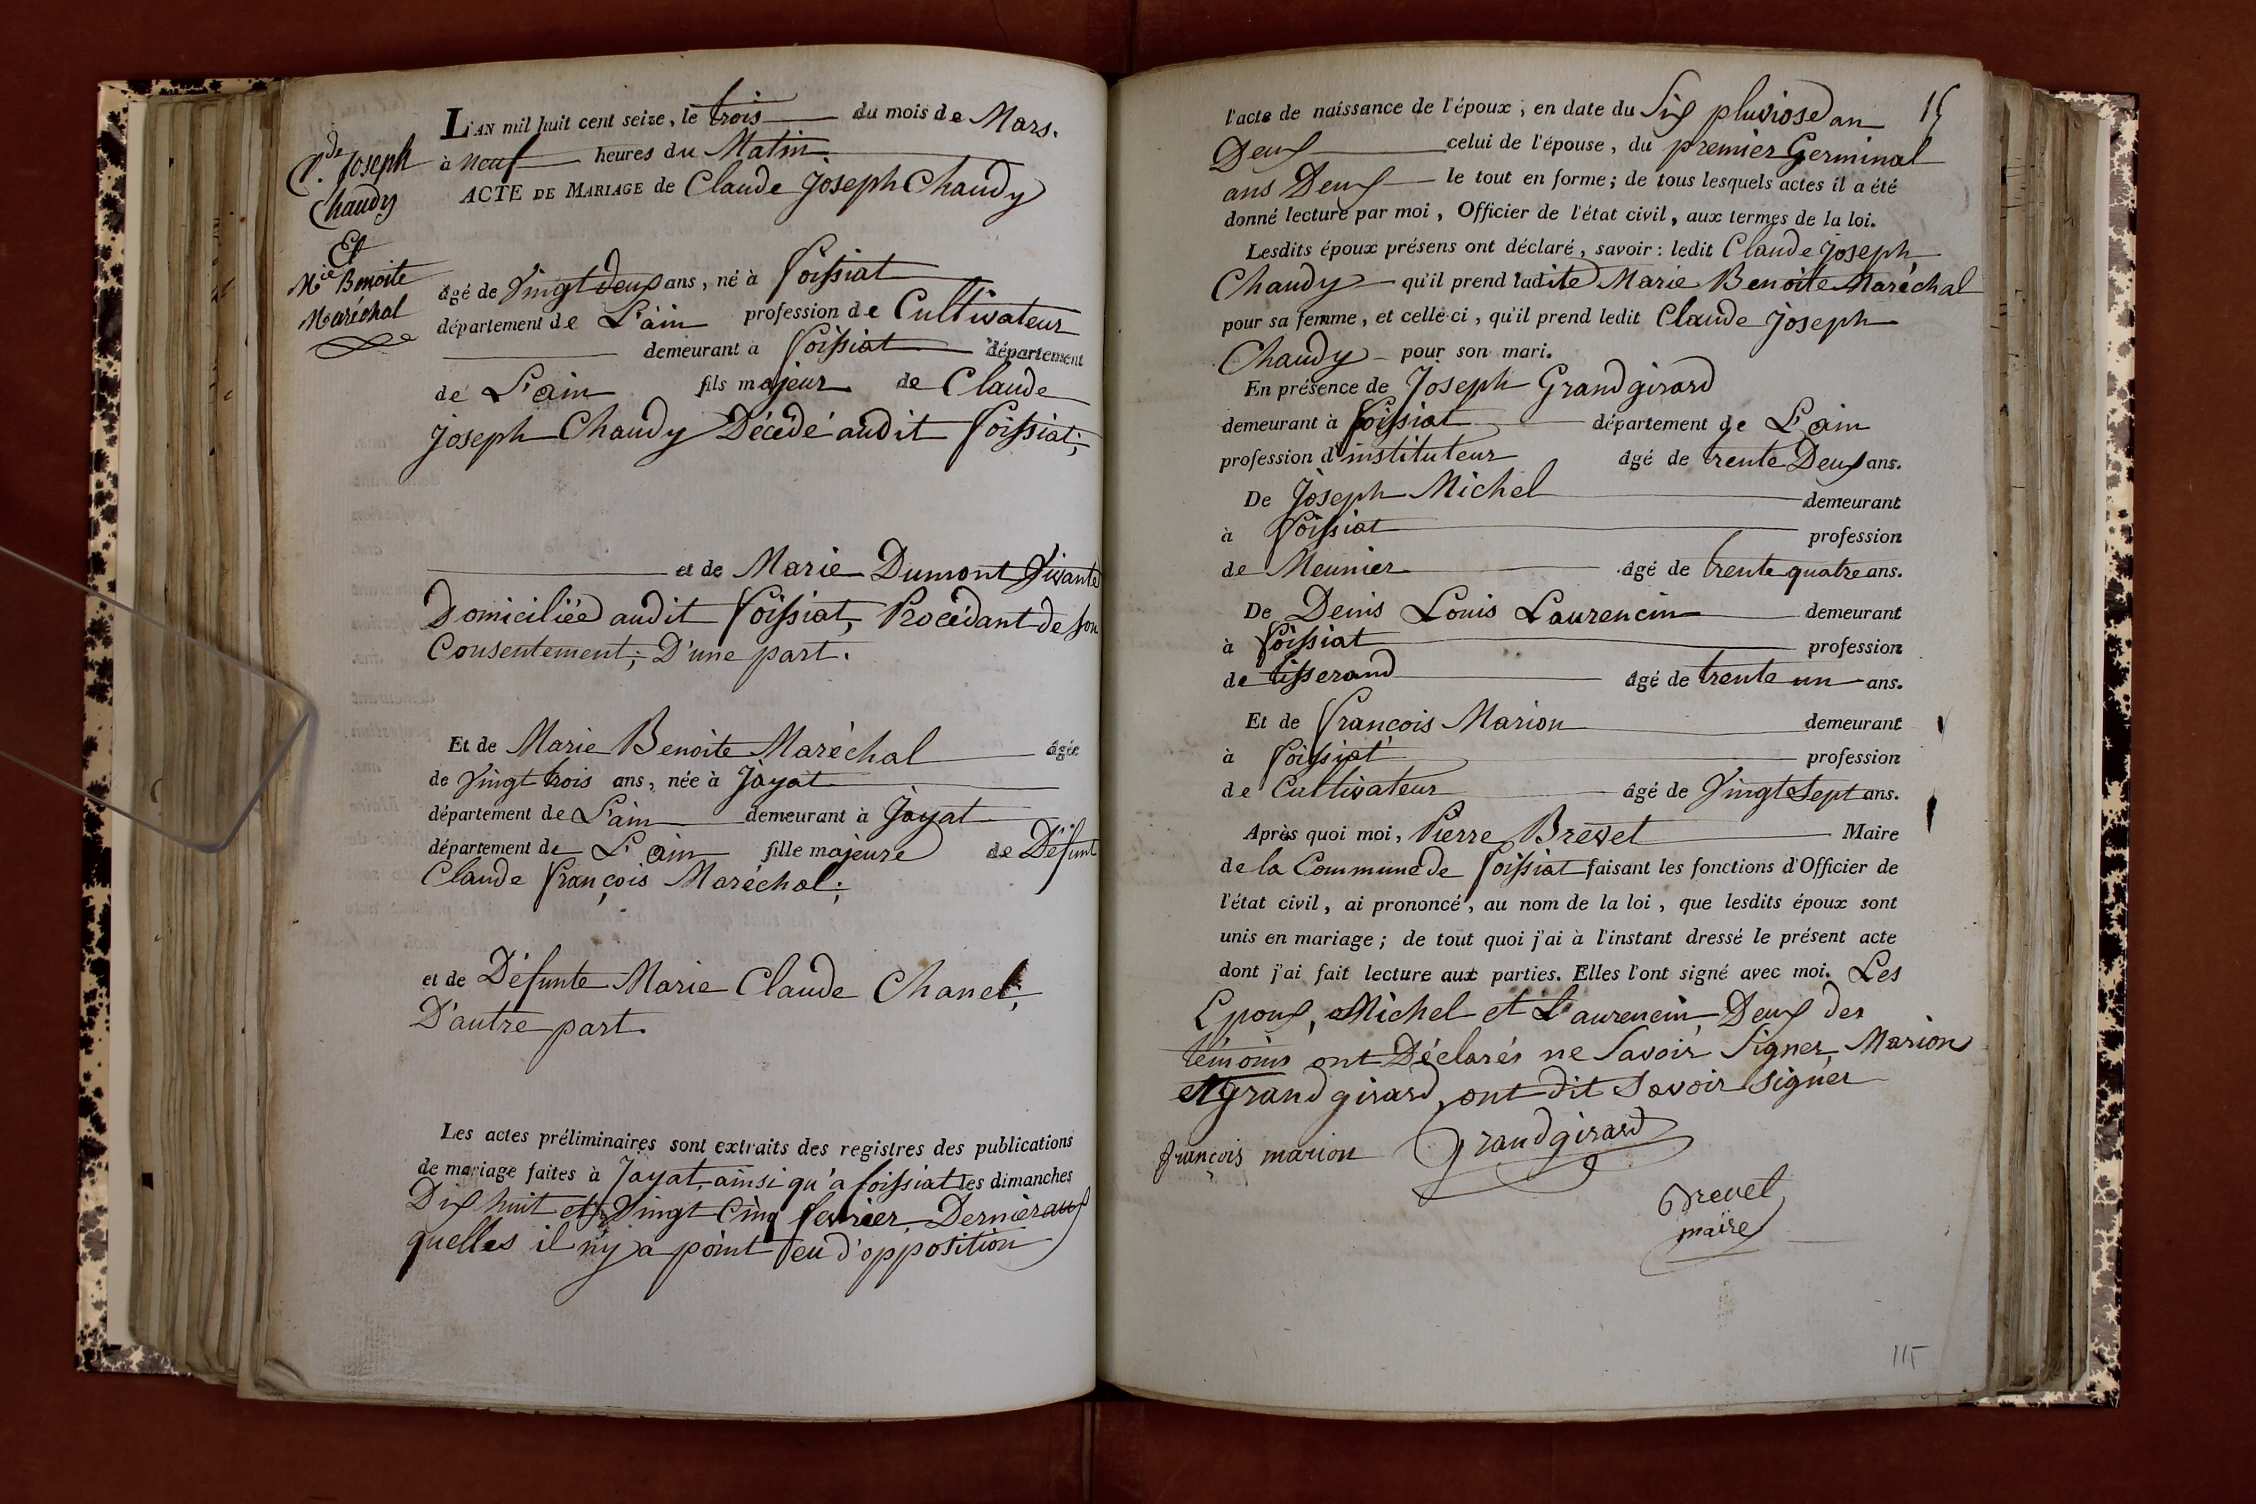 C.de Joseph
Chaudy
Et
M.ie Benoite
Maréchal
L'AN mil huit cent seize, le trois du mois de Mars.
à neuf heures du Matin.
ACTE DE MARIAGE de Claude Joseph Chaudy
âgé de Vingt deux ans, né à foissiat
département de L'ain profession de Cultivateur
demeurant à foissiat département
de L'ain fils majeur de Claude
Joseph Chaudy Décédé audit foissiat;
et de Marie Dumont Vivante
Domiciliée audit foissiat, Procédant de son
Consentement; D'une part.
Et de Marie Benoite Maréchal âgée
de Vingt trois ans, née à Jayat
département de L'ain demeurant à Jayat
département de L'ain fille majeure de Défunt
Claude françois Maréchal;
et de Défunte Marie Claude Chanel;
D'autre part.
Les actes préliminaires sont extraits des registres des publications
de mariage faites à Jayat, ainsi qu'à foissiat les dimanches
Dix huit et Vingt Cinq fevrier Dernier aux
quelles il n'y a point eu d'opposition
15
l'acte de naissance de l'époux, en date du Six pluviose an
Deux celui de l'épouse, du premier Germinal
ans Deux le tout en forme; de tous lesquels actes il a été
donné lecture par moi, Officier de l'état civil, aux termes de la loi.
Lesdits époux présens ont déclaré, savoir: ledit Claude Joseph
Chaudy qu'il prend ladite Marie Benoite Maréchal
pour sa femme, et celle-ci, qu'il prend ledit Claude Joseph
Chaudy pour son mari.
En présence de Joseph Grandgirard
demeurant à foissiat département de L'ain
profession d'instituteur âgé de trente Deux ans.
De Joseph Michel demeurant
à foissiat profession
de Meunier âgé de trente quatre ans.
De Denis Louis Laurencin demeurant
à foissiat profession
de tisserand âgé de trente un ans.
Et de françois Marion demeurant
à foissiat profession
de Cultivateur âgé de Vingt Sept ans.
Après quoi moi, Pierre Brevet Maire
de la Commune de foissiat faisant les fonctions d'Officier de
l'état civil, ai prononcé, au nom de la loi, que lesdits époux sont
unis en mariage; de tout quoi j'ai à l'instant dressé le présent acte
dont j'ai fait lecture aux parties. Elles l'ont signé avec moi. Les
Epoux, Michel et Laurencin, Deux des
témoins ont Déclarés ne Savoir Signer, Marion
et grandgirard, ont dit Savoir signer
françois marion grandgirard
Brevet
maire
115